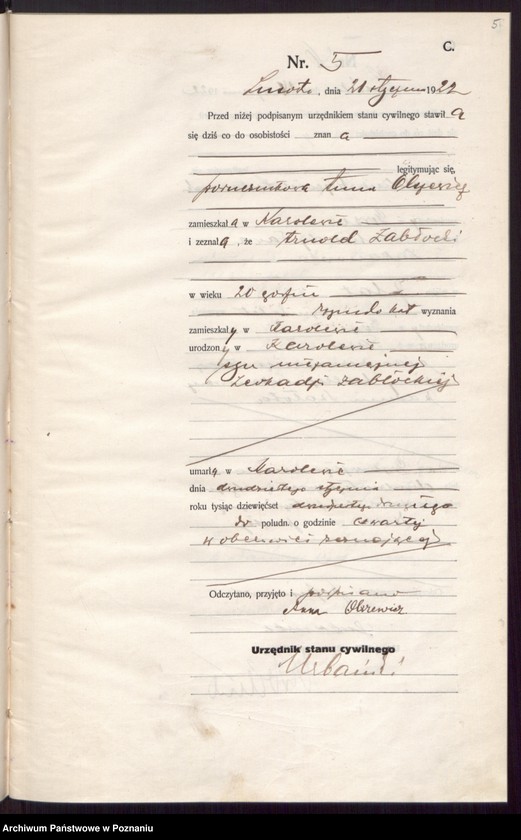 5.
C.
Nr. 5
dnia 21 stycznia 1922
Przed niżej podpisanym urzędnikiem stanu cywilnego stawił a
się dziś co do osobistości znan a
legitymując się,
Anna
zamieszkał a w Karolewie
i zeznał a , że Arnold Zabłocki
w wieku 20 godzin
wyznania
zamieszkał y w Karolewie
urodzon y w Karolewie
syn niezamężnej
Leokadji Zabłockiej
umarł w Karolewie
dnia dwudziestego stycznia
roku tysiąc dziewięćset dwudziestego drugiego
po połudn. o godzinie czwartej
w obecności zeznającej
Odczytano, przyjęto i podpisano
Anna Olszewicz
Urzędnik stanu cywilnego
Urbański
Archiwum Państwowe w Poznaniu